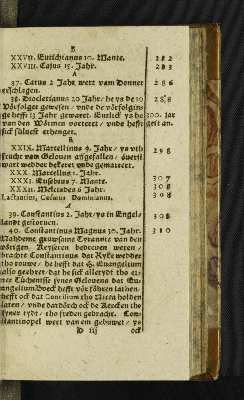 B
XXVII. Eutichianus 10. Mante. 282
XXVIII. Cajus 15. Jahr. 283
A
37. Carus 2 Jahr wert vam Donner 286
erschlagen.
38. Diocletianus 20 Jahr / he ys de 10 288
Vörfolger gewesen / vnde de vörfolgin-
ge hefft 13 Jahr gewaret. Entlick ys he 300. jar
van den Wörmen vorteret / vnde hefft gestan.
sick sülvest erhenget.
B
XXIX. Marcellinus 9. Jahr / ys vth 298
frucht vam Gelouen affgefallen / överst
wart wedder bekeret vnde gemartert.
XXX. Marcellus 1. Jahr. 307
XXXI. Eusebius 7. Mante. 308
XXXII. Melciades 6 Jahr. 308
Lactantius, Cosmus Damianus.
A
39. Constantius 2. Jahr / ys in Engel- 308
landt gestoruen.
40. Constantinus Magnus 30. Jahr. 310
Nahdeme gruwsame Tyrannie van den
vörigen Keyseren bedreuen weren /
brachte Constantinus dat Ryke wedder
tho rouwe / he hefft dat H. Euangelium
also geehret / dat he sick allerydt tho ei-
ner Tüchenisse synes Gelouens dat Eu-
angelium Boeck hefft vör sick laten
hefft ock dat Concilium tho Nicea holden
laten / vnde dardörch ock de Kercken tho
syner tydt / tho freden gebracht. Con-
stantinopel wert van em gebuwet / ys
D iij ock